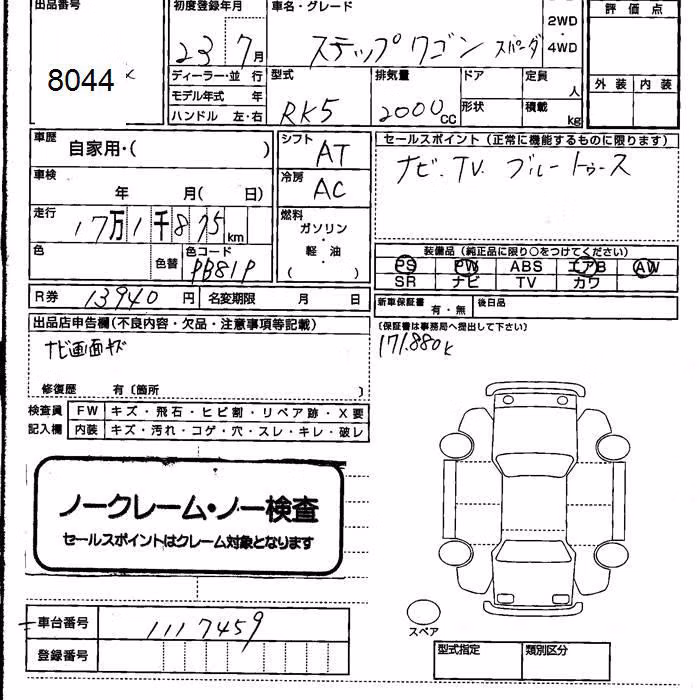 出品番号
8044
初度登録年月
23 7月
車名・グレード
ステップワゴン スパーダ
2WD
・
4WD
評価点
外装 内装
ディーラー・並 行
モデル年式 年
ハンドル 左・右
型式
RK5
排気量
2000cc
ドア
形状
定員
人
積載
kg
車歴
自家用・( )
シフト
AT
セールスポイント(正常に機能するものに限ります)
ナビ、TV ブルートゥース
車検
年 月( 日)
冷房
AC
走行
17万1千875km
燃料
ガソリン
・
軽・油
( )
色
色替
色コード
PB81P
装備品(純正品に限り○をつけてください)
PS PW ABS エアB AW
SR ナビ TV カワ
R券 13940円
名変期限 月 日
新車保証書
有・無
後日品
出品店申告欄(不良内容・欠品・注意事項等記載)
(保証書は事務局へ提出して下さい)
171.880k
ナビ画面キズ
修復歴 有〔箇所 〕
検査員
記入欄
FW キズ・飛石・ヒビ割・リペア跡・X要
内装 キズ・汚れ・コゲ・穴・スレ・キレ・破レ
ノークレーム・ノー検査
セールスポイントはクレーム対象となります
スペア
車台番号
1117459
登録番号
型式指定
類別区分